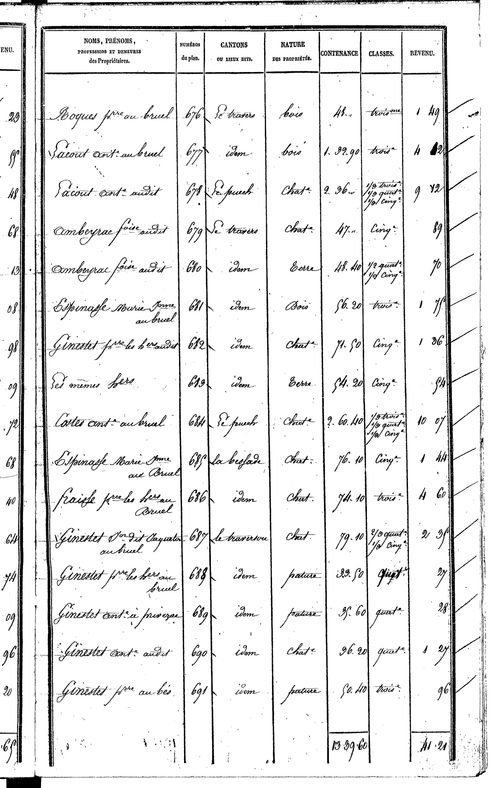 ENU.
23
48
68
13
08
98
09
72
68
40
64
74
09
96
20
65
NOMS, PRÉNOMS, PROFESSIONS ET DEMEURES des Propriétaires. NUMÉROS du plan. CANTONS OU LIEUX DITS. NATURE DES PROPRIÉTÉS. CONTENANCE CLASSES. REVENU.
Roques prre au bruel 676 Le travers bois 48 troisme 1 49
Lacout ant. au bruel 677 idem bois 1. 32.90 trois. 4
Lacout ant. audit 678 Le puech Chat. 2. 36 1/3 trois. 1/3 quat. 1/3 Cinq. 9 12
ambeyrac foise audit 679 Le travers Chat. 47 Cinq. 89
ambeyrac foise audit 680 idem Terre 48.40 1/2 quat. 1/2 Cinq. 70
Espinasse Marie Jnne au bruel 681 idem Bois 56.20 trois. 1 75
Ginestet prre les hers audit 682 idem Chat. 71.50 Cinq. 1 36
Les mêmes hers 683 idem Terre 54.20 Cinq. 54
Costes ant. au bruel 684 Le puech Chat. 2. 60.40 1/3 trois. 1/3 quat. 1/3 Cinq. 10 07
Espinasse Marie Jnne au Bruel 685 Chat. 76.10 Cinq. 1 44
fraisse prre les hers au Bruel 686 idem Chat. 74.10 trois. 4 60
Ginestet dit au bruel 687 le traverson Chat. 79.10 2/3 quat. 1/3 Cinq. 2 35
Ginestet prre les hers au bruel 688 idem pature 33.50 27
Ginestet ant. à 689 idem pature 35.60 quat. 28
Ginestet ant. audit 690 idem Chat. 36.20 quat. 1 27
Ginestet prre au bés 691 idem pature 50.40 trois. 96
13 39.60 41.21